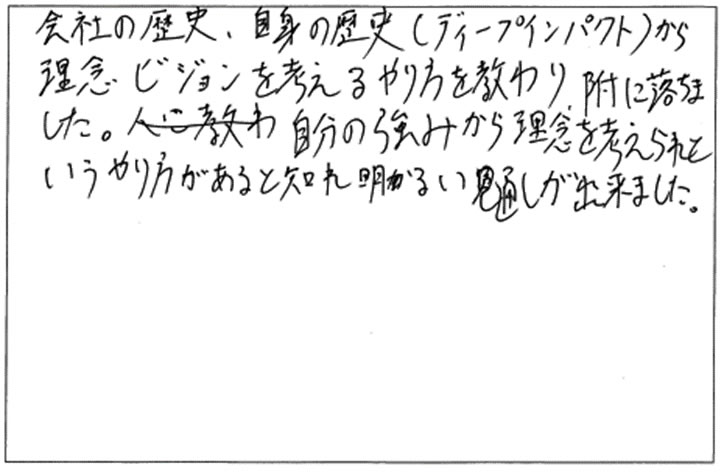 会社の歴史、自身の歴史(ディープインパクト)から
理念 ビジョンを考えるやり方を教わり 附に落ちま
した。自分の強みから理念を考えられと
いうやり方があると知れ 明かるい見通しが出来ました。